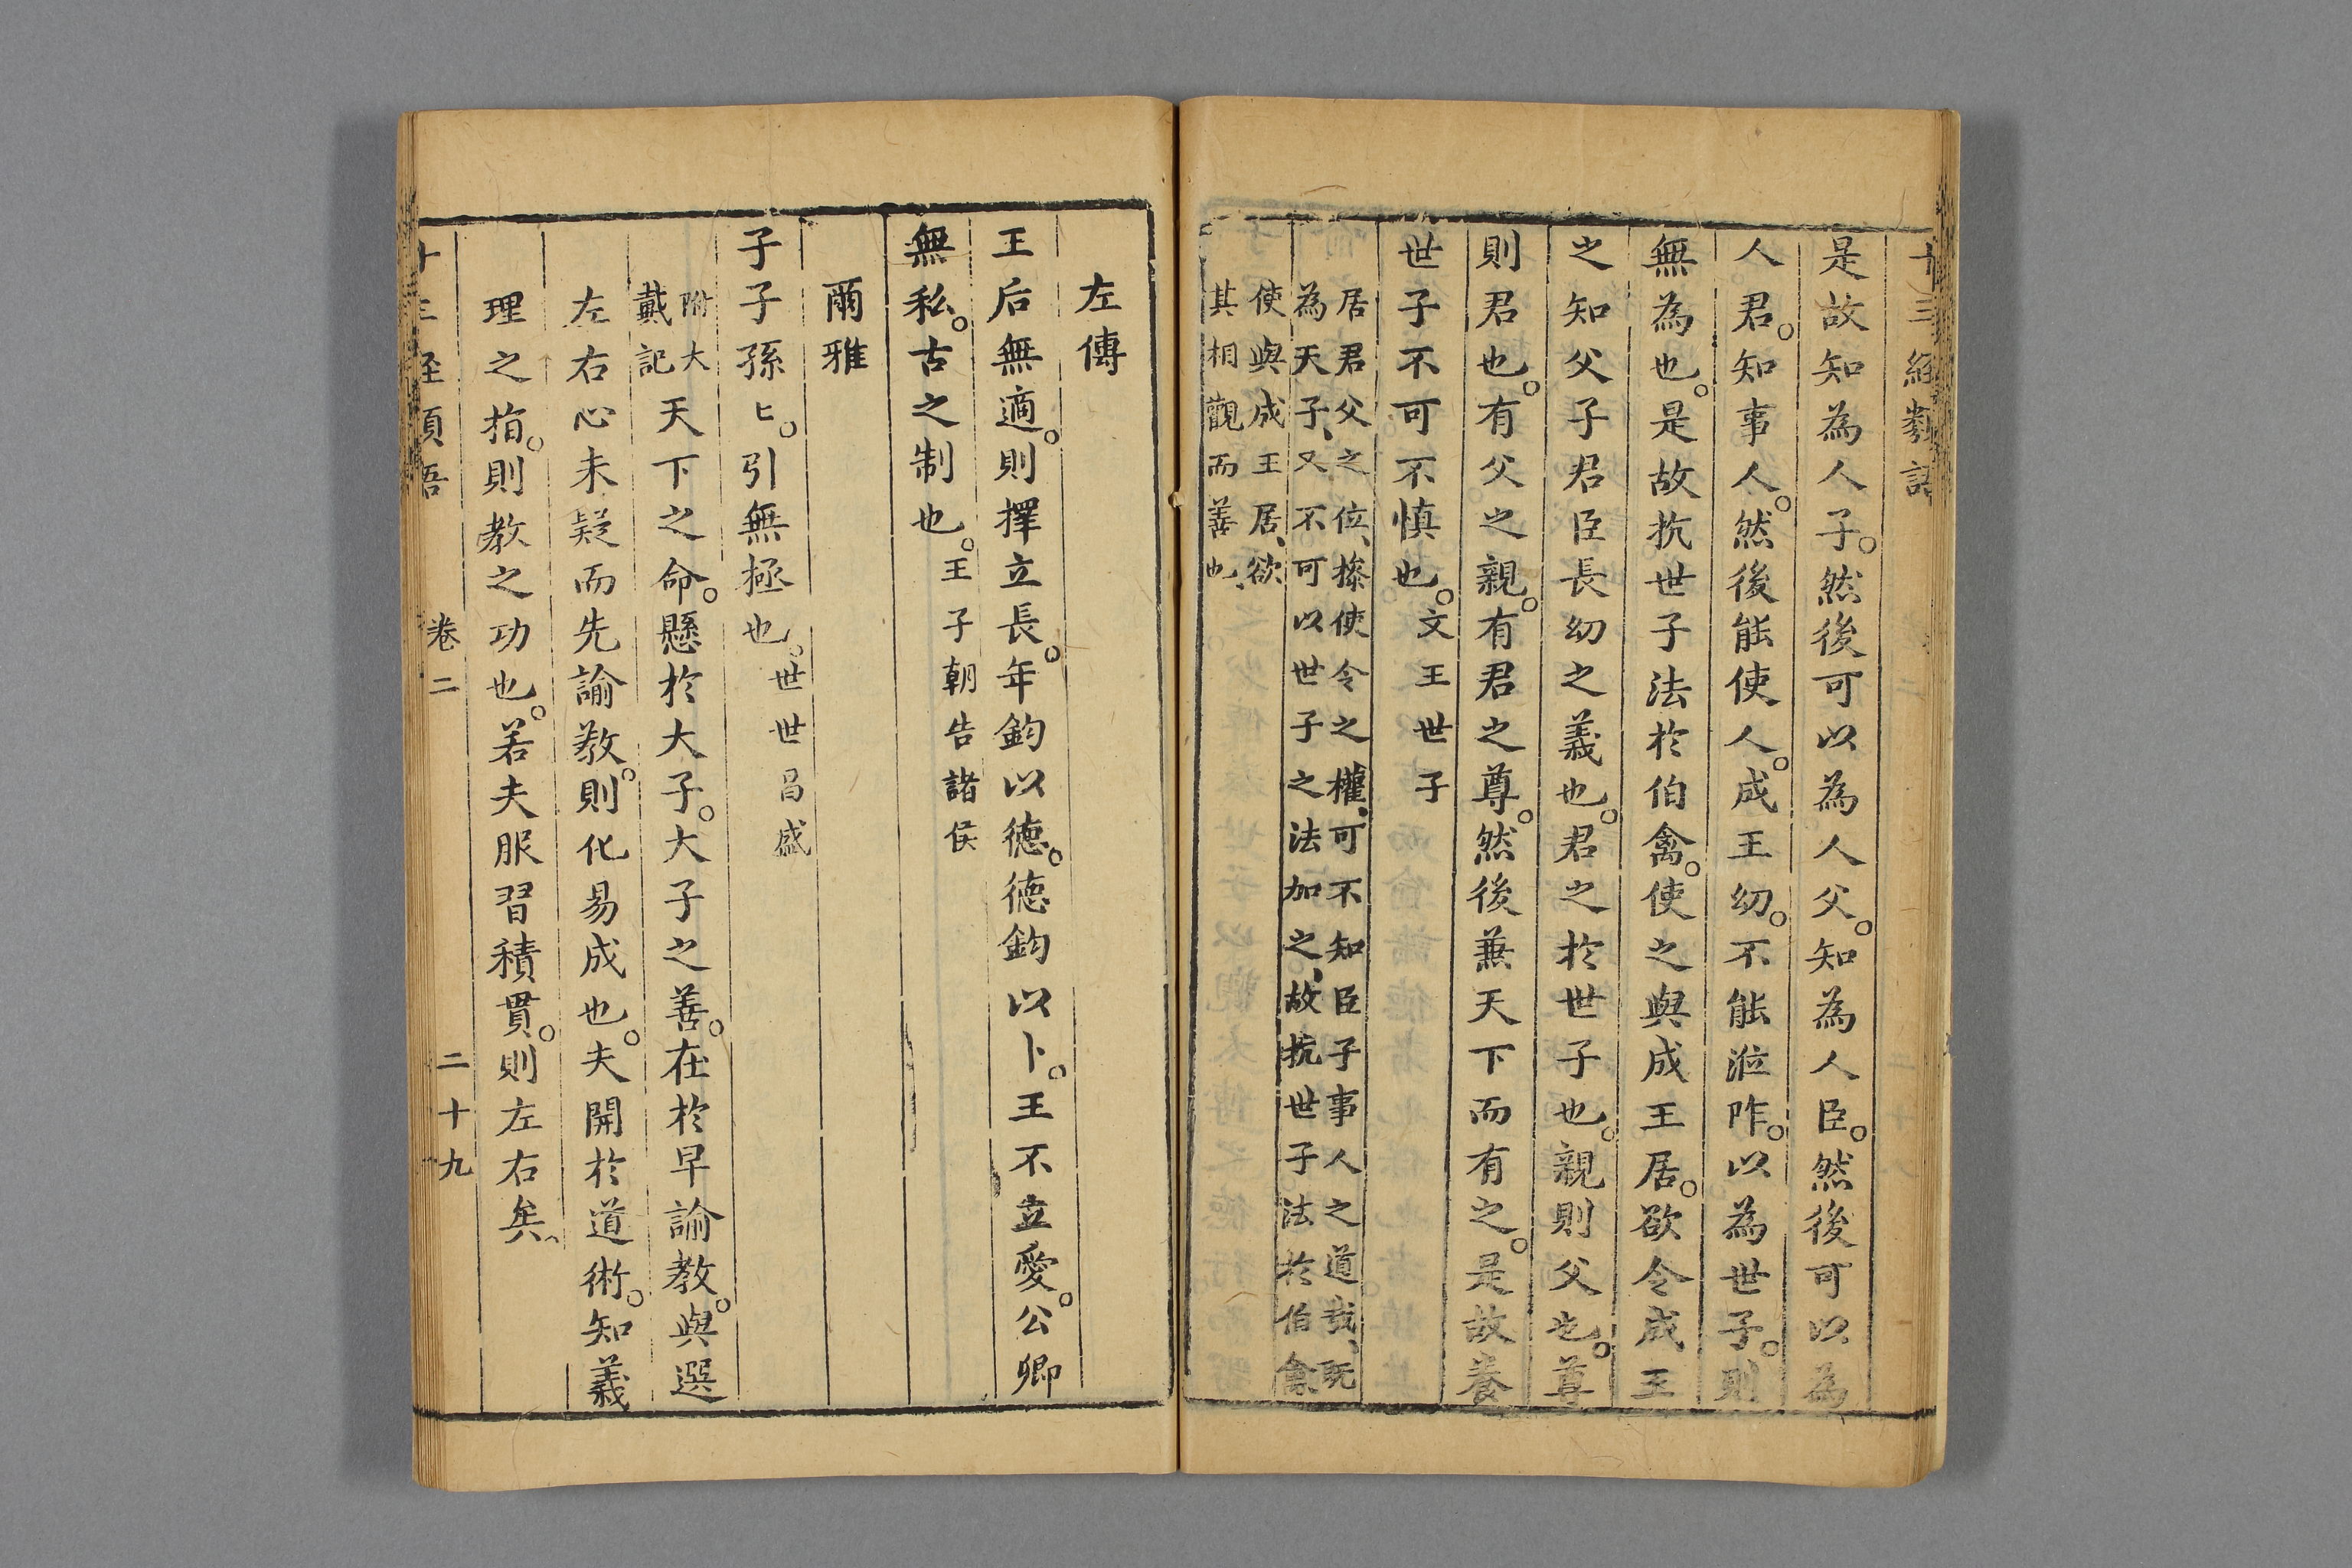 十三經類語
是故知為人子。然後可以為人父。知為人臣。然後可以為
人君。知事人。然後能使人。成王幼。不能涖阼。以為世子。則
無為也。是故抗世子法於伯禽。使之與成王居。欲令成王
之知父子君臣長幼之義也。君之於世子也。親則父也。尊
則君也。有父之親。有君之尊。然後兼天下而有之。是故養
世子不可不慎也。文王世子
居君父之位、搽使令之權、可不知臣子事人之道哉、既
為天子、又不可以世子之法加之、故抗世子法於伯禽
使與成王居、欲
其相觀而善也、
左傳
王后無適。則擇立長。年鈞以德。德鈞以卜。王不立愛。公卿
無私。古之制也。王子朝告諸侯
爾雅
子子孫〻。引無極也。世世昌盛
附大
戴記
天下之命。懸於大子。大子之善。在於早諭教。與選
左右心未疑而先諭教。則化易成也。夫開於道術。知義
理之指。則教之功也。若夫服習積貫。則左右矣、
卷二
二十九